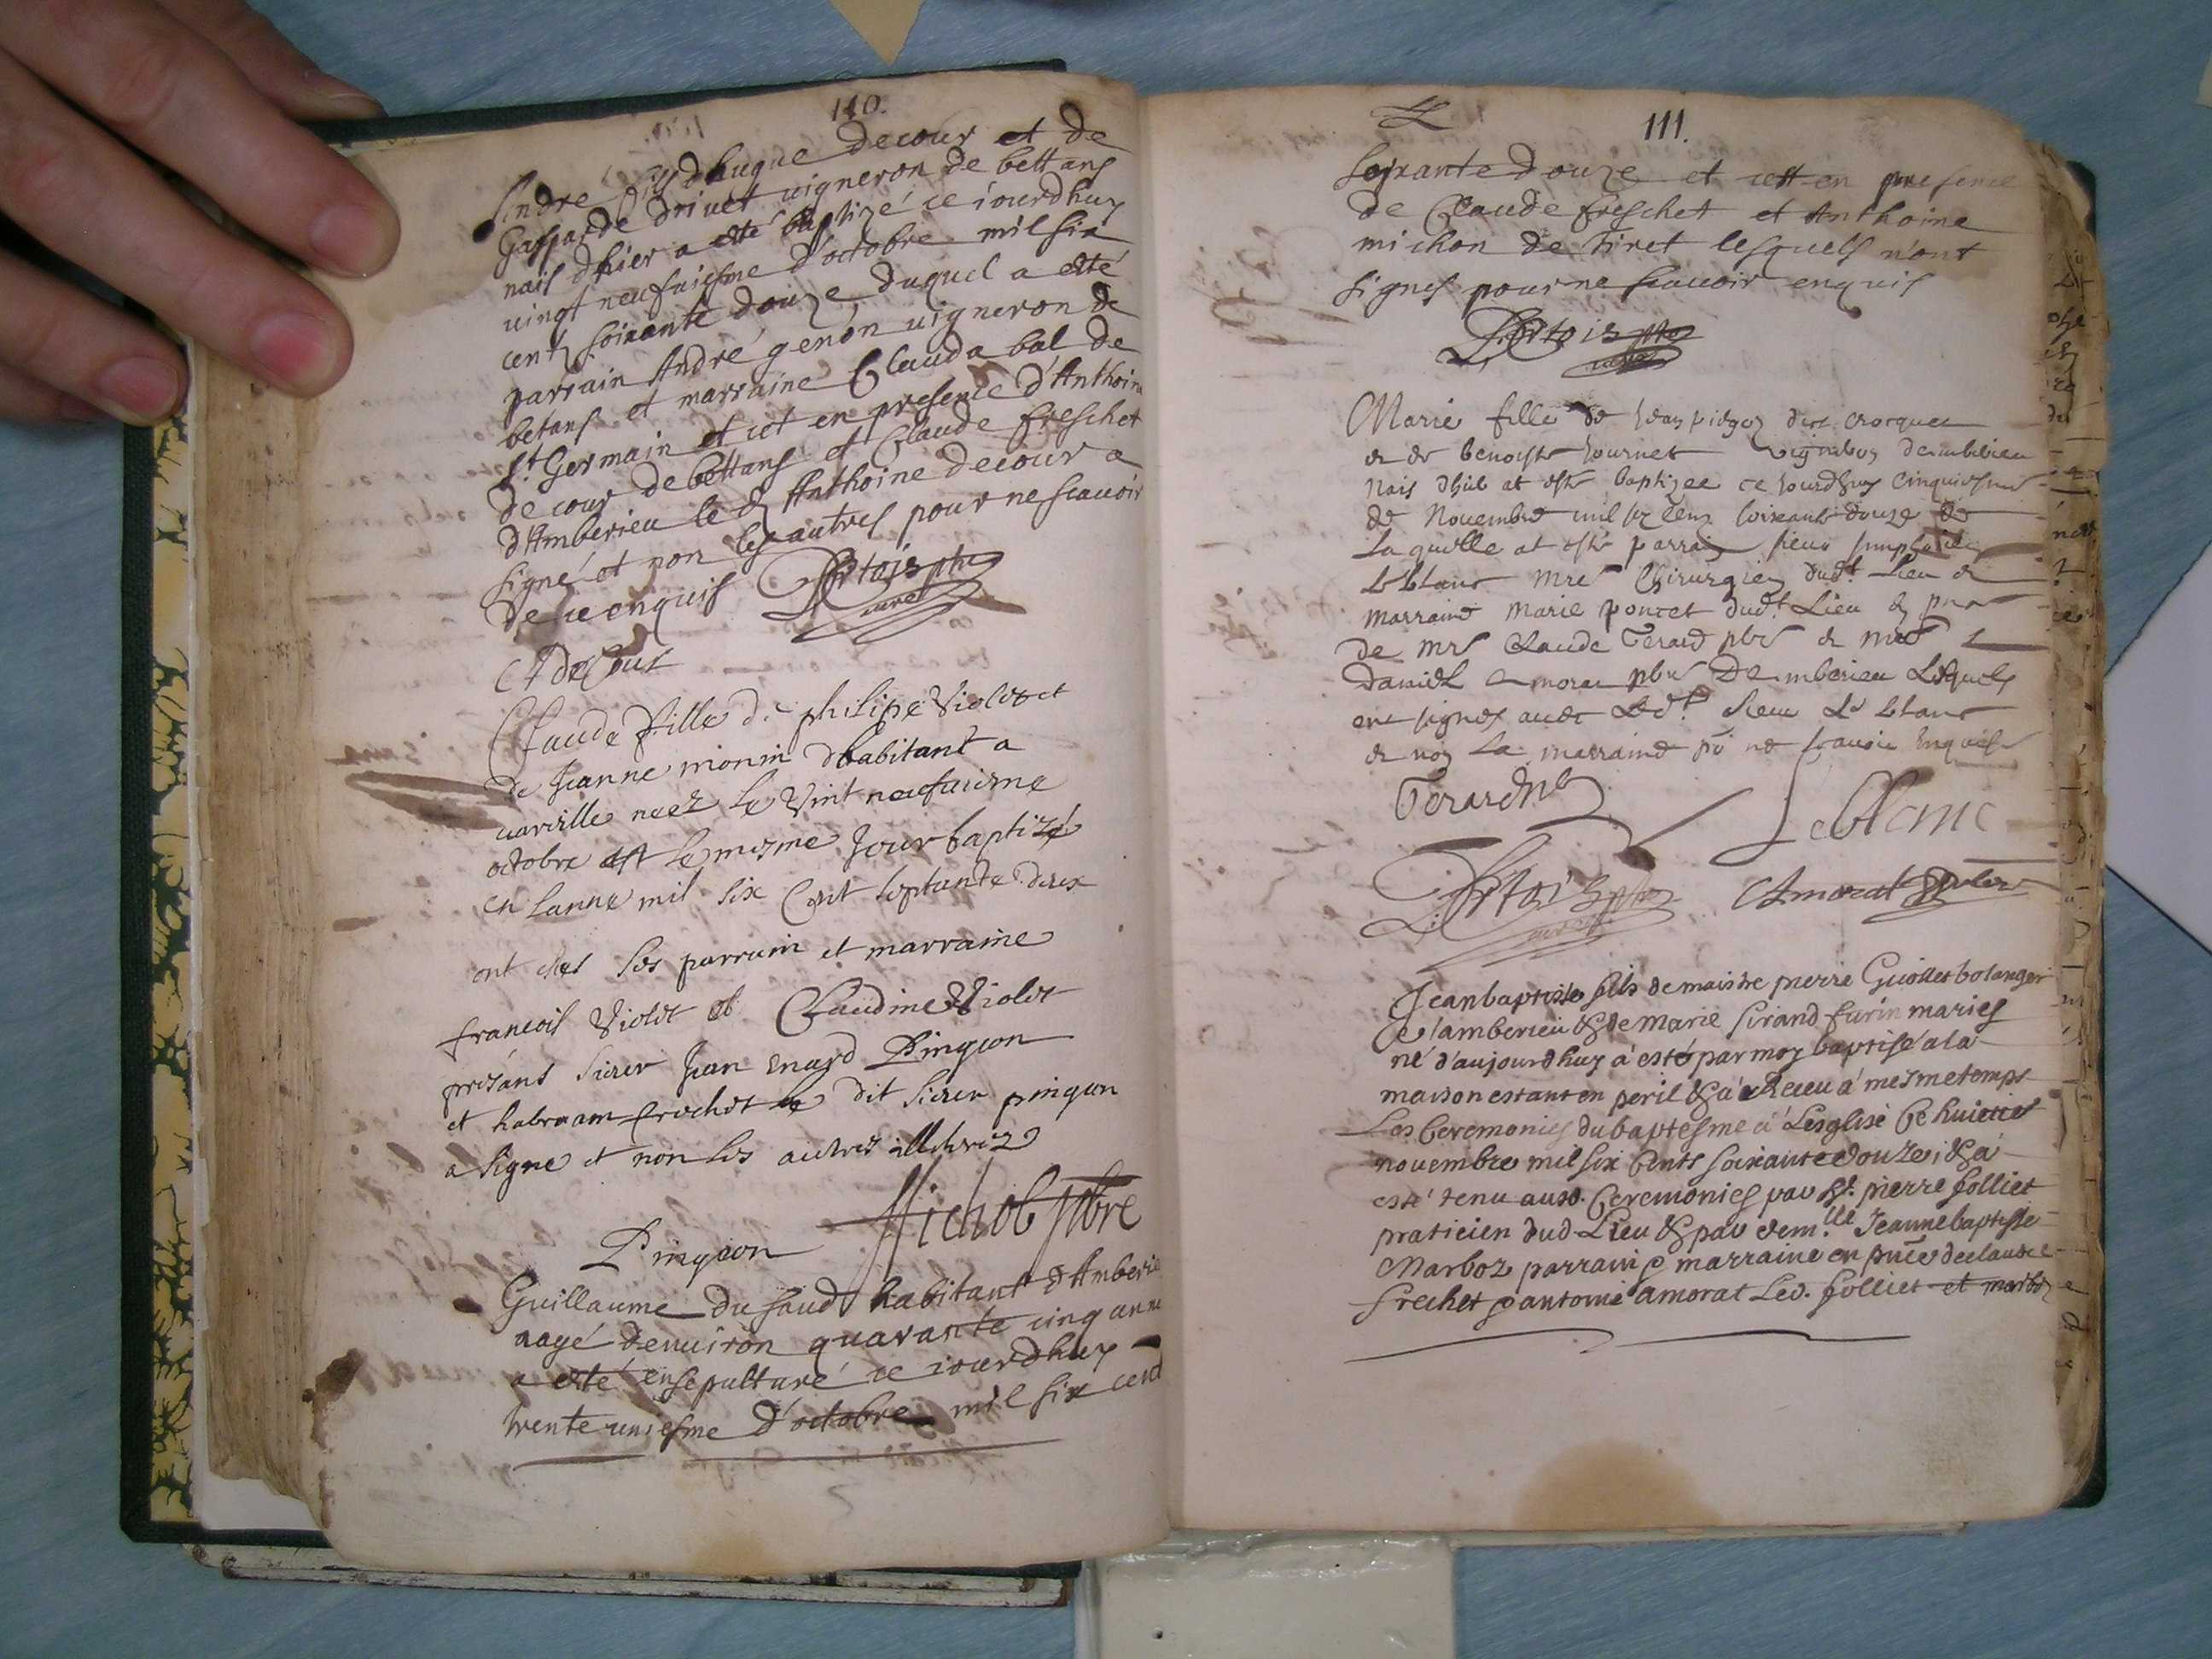 110.
Andre fils d'hugue decour et de
Gasparde driuet uigneron de bettans
nais d'hier a esté baptizé ce iourdhuy
uingt neufuiesme d'octobre mil six
centz soixante douze, duquel a esté
parrain André genon uigneron de
betans et marraine Clauda bal de
St. Germain et cet en presence d'Anthoine
de cour de bettans et Claude freschet
d'Amberieu le d Anthoine decour a
signé et non les autres pour ne scauoir
de ce enquis
curé
A decour
Clauda fille de philipe Violet et
de Jeanne monin dhabitant a
uareille neez le Vint neufuieme
octobre est le mesme Jour baptizé
en Lanne mil six Cent septante deux
ont estes ses parrain et marraine
francois Violet et Claudine Violet
presans sieur Jean Enard Pingeon
et habraam frechet le dit sieur pingon
a signe et non les autres illeterez
Michol pbre
Pingeon
Guillaume du saud habitant d'Amberieu
aagé denuiron quarante cinq anne
a esté ensepulturé ce iourdhuy
trente uniesme d'octobre mil six cent
111.
soixante douze et cest en presence
de Claude freschet et Anthoine
michon de Tiret lesquels n'ont
signes pour ne scauoir enquis
curé
Marie fille de Jean dict
et de benoiste Journet vigneron
Nais d'hier at esté baptizee ce Jourdhuy cinquiesme
de Nouembre mil six Cens soixante douze de
Laquelle at esté parrain sieur
Leblanc Mre Chirurgien dudt. Lieu et
marraine Marie poncet dudt. Lieu en
de Mre Claude Terard pbre et Mre
Daniel amorat pbre Damberieu Lesquels
ont signes auec Ledt. sieur Le blanc
et non La marraine po ne scauoir Enquise
Terard
Leblanc
curé
Amorat
Jean baptiste fils de maistre pierre Guiollet bolanger
d'amberieu & de marie sirand furin maries
né d'aujourdhuy a esté par moy baptisé a la
maison estant en peril & a Receu a mesme temps
Les Ceremonies du baptesme a L'esglise Ce huictie
nouembre mil six Cents soixante douze, & a
esté tenu ausd. Ceremonies par Sr. pierre folliet
praticien dud. Lieu & par dem.lle Jeanne baptiste
Marboz parrain & marraine en pnce de claude
frechet & antoine amorat Led. folliet et marboz